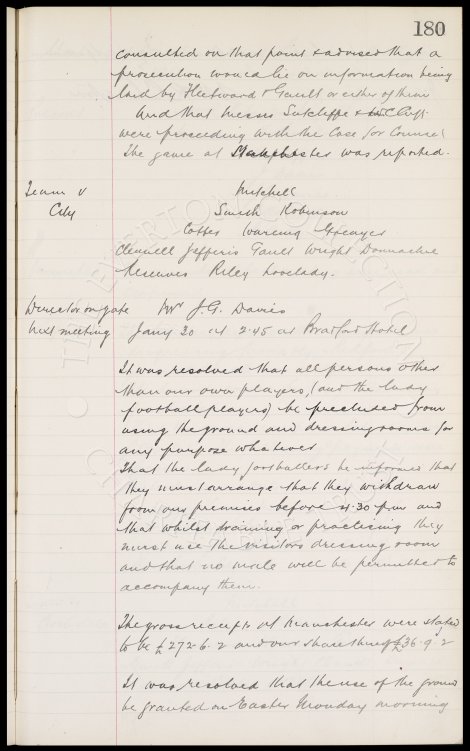 180
consulted on that point & advised that a
prosecution would lie on information being
laid by Fleetwood & Gault or either of them
And that Messrs Sutcliffe &
were proceeding with the Case for Counsel
The game at Manchester was reported.
Team v Mitchell
City Smith Robinson
Coffey Wareing Grenyer
Clennell Jefferis Gault Wright Donnachie
Reserves Riley Lovelady.
Director on gate Mr J.G. Davies
Next meeting Jany 30 at 2.45 at Bradford Hotel
It was resolved that all persons other
than our own players, (and the lady
football players) be precluded from
using the ground and dressing rooms for
any purpose whatever
That the lady footballers be informed that
they must arrange that they withdraw
from our premises before 4.30 pm and
that whilst training or practising they
must use the visitors dressing room
and that no male will be permitted to
accompany them.
The gross receipts at Manchester were stated
to be £272.6.2 and our share thereof £36.9.2
It was resolved that the use of the ground
be granted on Easter Monday morning